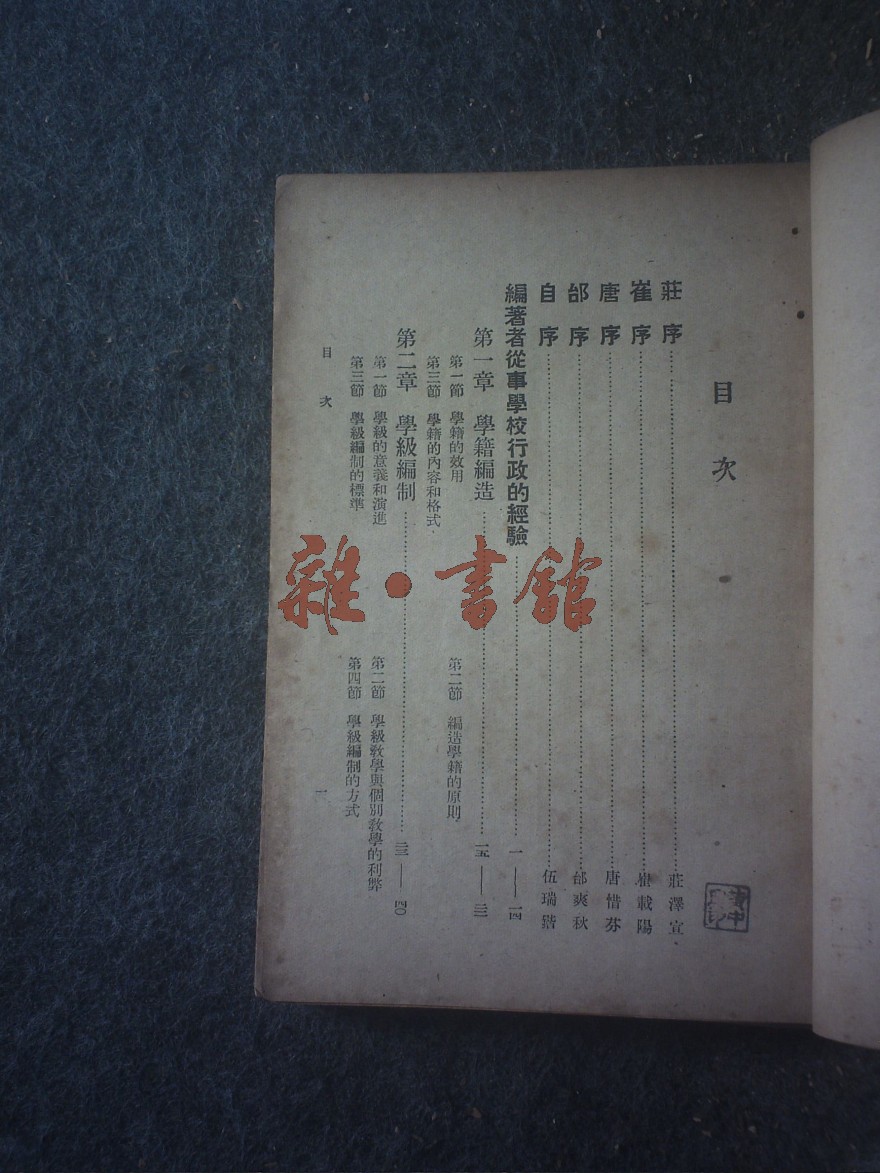 目次
莊序 莊澤宣
崔序 崔載陽
唐序 唐惜芬
邰序 邰爽秋
自序 伍瑞鍇
編著者從事學校行政的經驗 一——一四
第一章 學籍編造 一五——二二
第一節 學籍的效用 第二節 編造學籍的原則
第三節 學籍的內容和格式
第二章 學級編制 二三——四〇
第一節 學級的意義和演進 第二節 學級教學與個別教學的利弊
第三節 學級編制的標準 第四節 學級編制的方式
目次 一
雜·書館